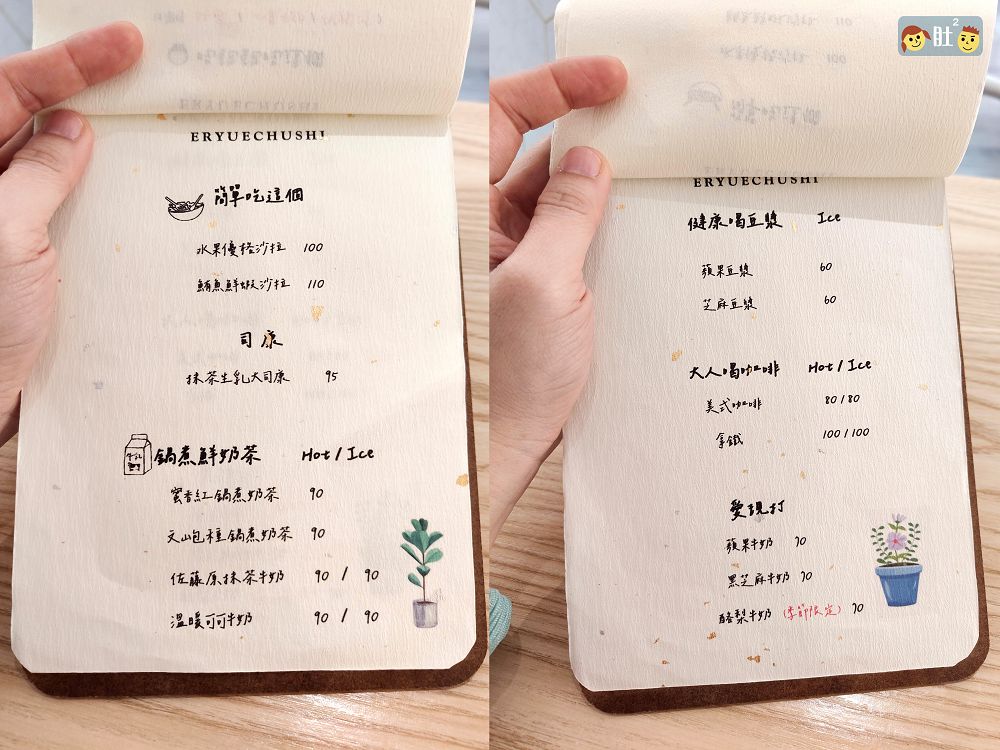 ERYUECHUSHI
簡單吃這個
水果優格沙拉 100
鮪魚鮮蝦沙拉 110
司康
抹茶生乳大司康 95
牛乳
鍋煮鮮奶茶 Hot / Ice
蜜香紅鍋煮奶茶 90
文山包種鍋煮奶茶 90
佐藤原抹茶牛奶 90 / 90
溫暖可可牛奶 90 / 90
肚2
ERYUECHUSHI
健康喝豆漿 Ice
蘋果豆漿 60
芝麻豆漿 60
大人喝咖啡 Hot / Ice
美式咖啡 80 / 80
拿鐵 100 / 100
愛現打
蘋果牛奶 70
黑芝麻牛奶 70
酪梨牛奶 (季節限定) 70